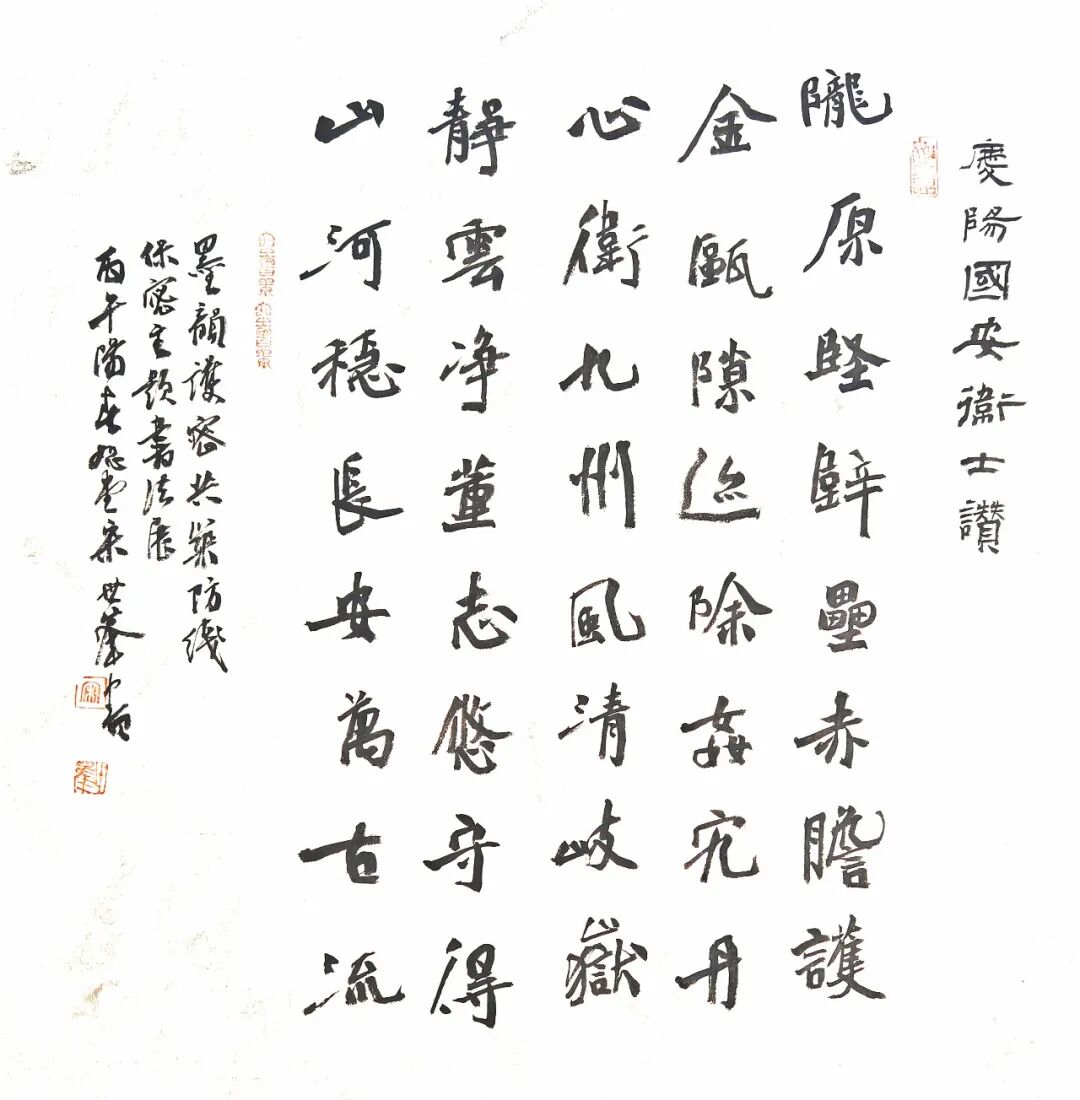 慶陽國安衛士讚
隴原堅壁壘赤膽護
金甌隙迹除姦宄丹
心衛九州風清岐嶽
靜雲净董志悠守得
山河穩長安萬古流
墨韻護密共築防綫
保密主題書法展
丙午陽春宋世峯